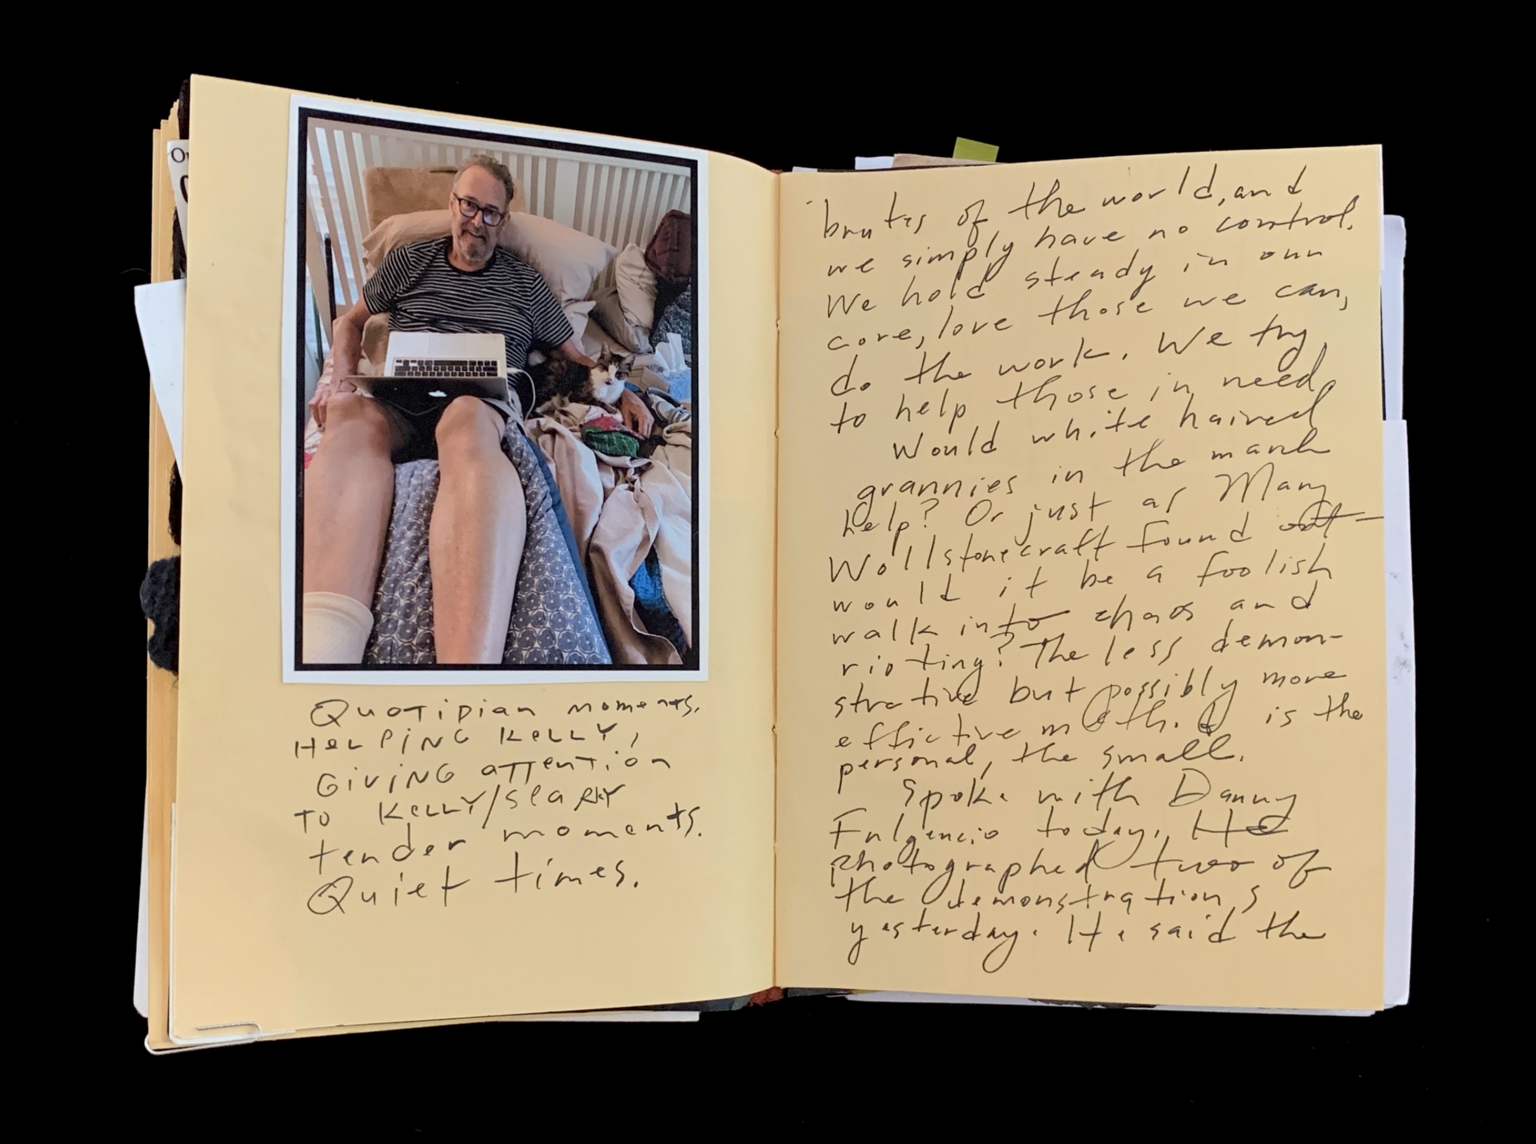 QUOTIDIAN MOMENTS.
HELPING KELLY,
GIVING ATTENTION
TO KELLY/SLARKY
tender moments.
Quiet times.
brutes of the world, and
we simply have no control.
We hold steady in our
core, love those we can,
do the work. We try
to help those in need.
Would white haired
grannies in the march
help? Or just as Mary
Wollstonecraft found out
would it be a foolish
walk into chaos and
rioting? The less demon-
strative but possibly more
effective method is the
personal, the small.
Spoke with Danny
Fulgencio today. He
photographed two of
the demonstrations
yesterday. He said the